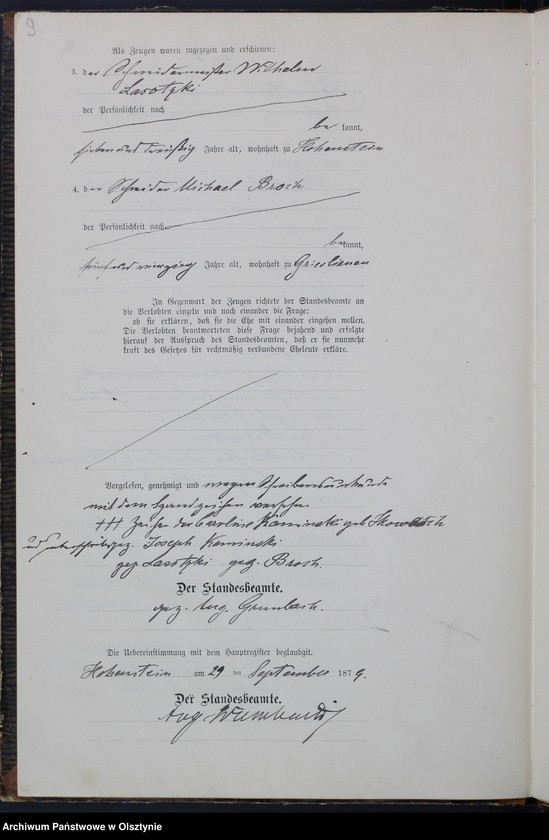 9
Als Zeugen waren zugezogen und erschienen:
3. der Schneidermeister Wilhelm
Lasotzki
der Persönlichkeit nach
be kannt,
sieben und dreißig Jahre alt, wohnhaft zu Hohenstein
4. der Schneider Michael Brosch
der Persönlichkeit nach
be kannt,
fünf und vierzig Jahre alt, wohnhaft zu Grieslienen
In Gegenwart der Zeugen richtete der Standesbeamte an
die Verlobten einzeln und nach einander die Frage:
ob sie erklären, daß sie die Ehe mit einander eingehen wollen.
Die Verlobten beantworteten diese Frage bejahend und erfolgte
hierauf der Ausspruch des Standesbeamten, daß er sie nunmehr
kraft des Gesetzes für rechtmäßig verbundene Eheleute erkläre.
Vorgelesen, genehmigt und wegen Schreibensunkunde
mit dem Handzeichen versehen
+++ Zeichen der Caroline Kaminski geb
und unterschrieben gez. Joseph Kaminski
gez Lasotzki gez. Brosch.
Der Standesbeamte.
gez. Aug.
Die Uebereinstimmung mit dem Hauptregister beglaubigt.
Hohenstein am 29 ten September 1879.
Der Standesbeamte.
Aug
Archiwum Państwowe w Olsztynie